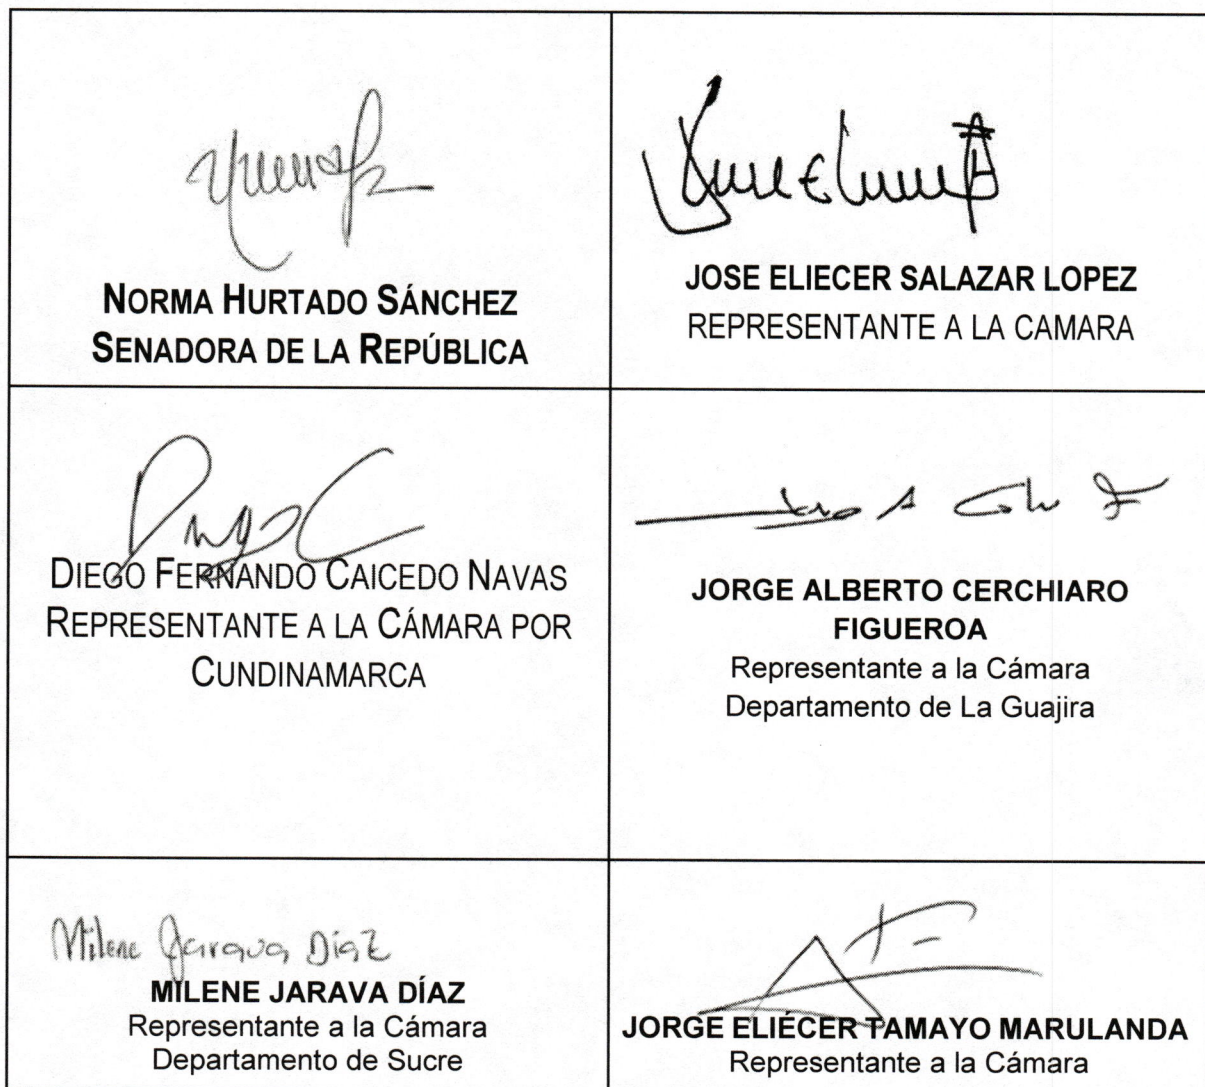 NORMA HURTADO SÁNCHEZ
SENADORA DE LA REPÚBLICA
JOSE ELIECER SALAZAR LOPEZ
REPRESENTANTE A LA CAMARA
DIEGO FERNANDO CAICEDO NAVAS
REPRESENTANTE A LA CÁMARA POR
CUNDINAMARCA
JORGE ALBERTO CERCHIARO
FIGUEROA
Representante a la Cámara
Departamento de La Guajira
Milene Jarava Díaz
MILENE JARAVA DÍAZ
Representante a la Cámara
Departamento de Sucre
JORGE ELIÉCER TAMAYO MARULANDA
Representante a la Cámara